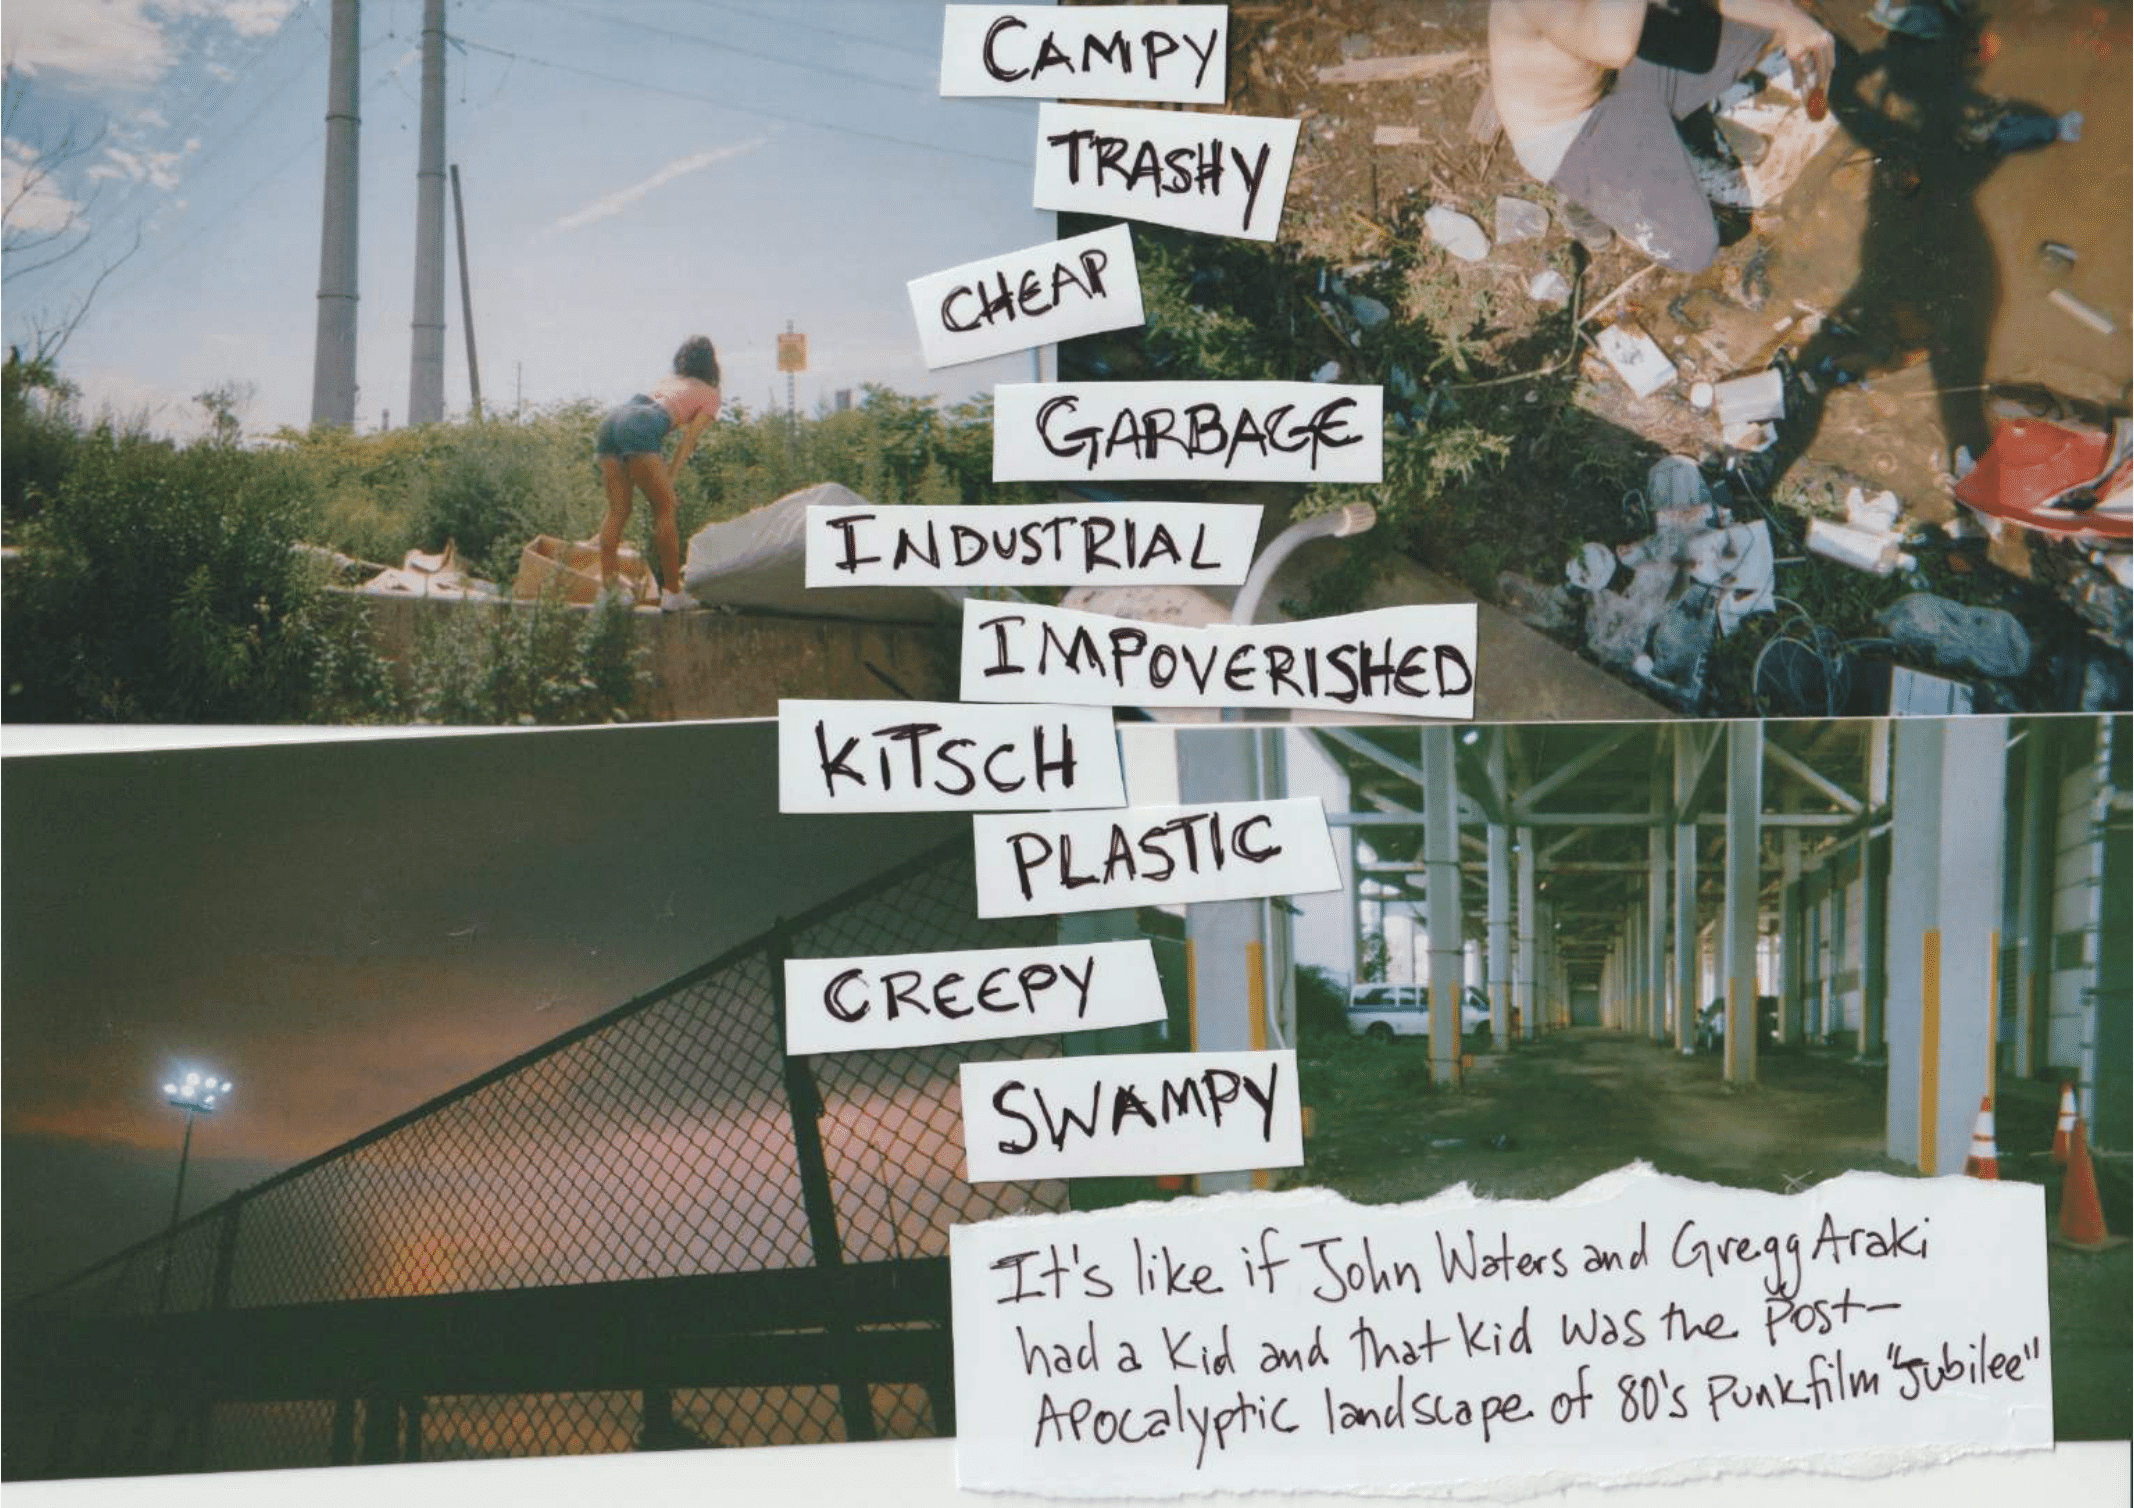 CAMPY
TRASHY
CHEAP
GARBAGE
INDUSTRIAL
IMPOVERISHED
KITSCH
PLASTIC
CREEPY
SWAMPY
It's like if John Waters and Gregg Araki
had a Kid and that kid was the Post-
Apocalyptic landscape of 80's Punk film "Jubilee"